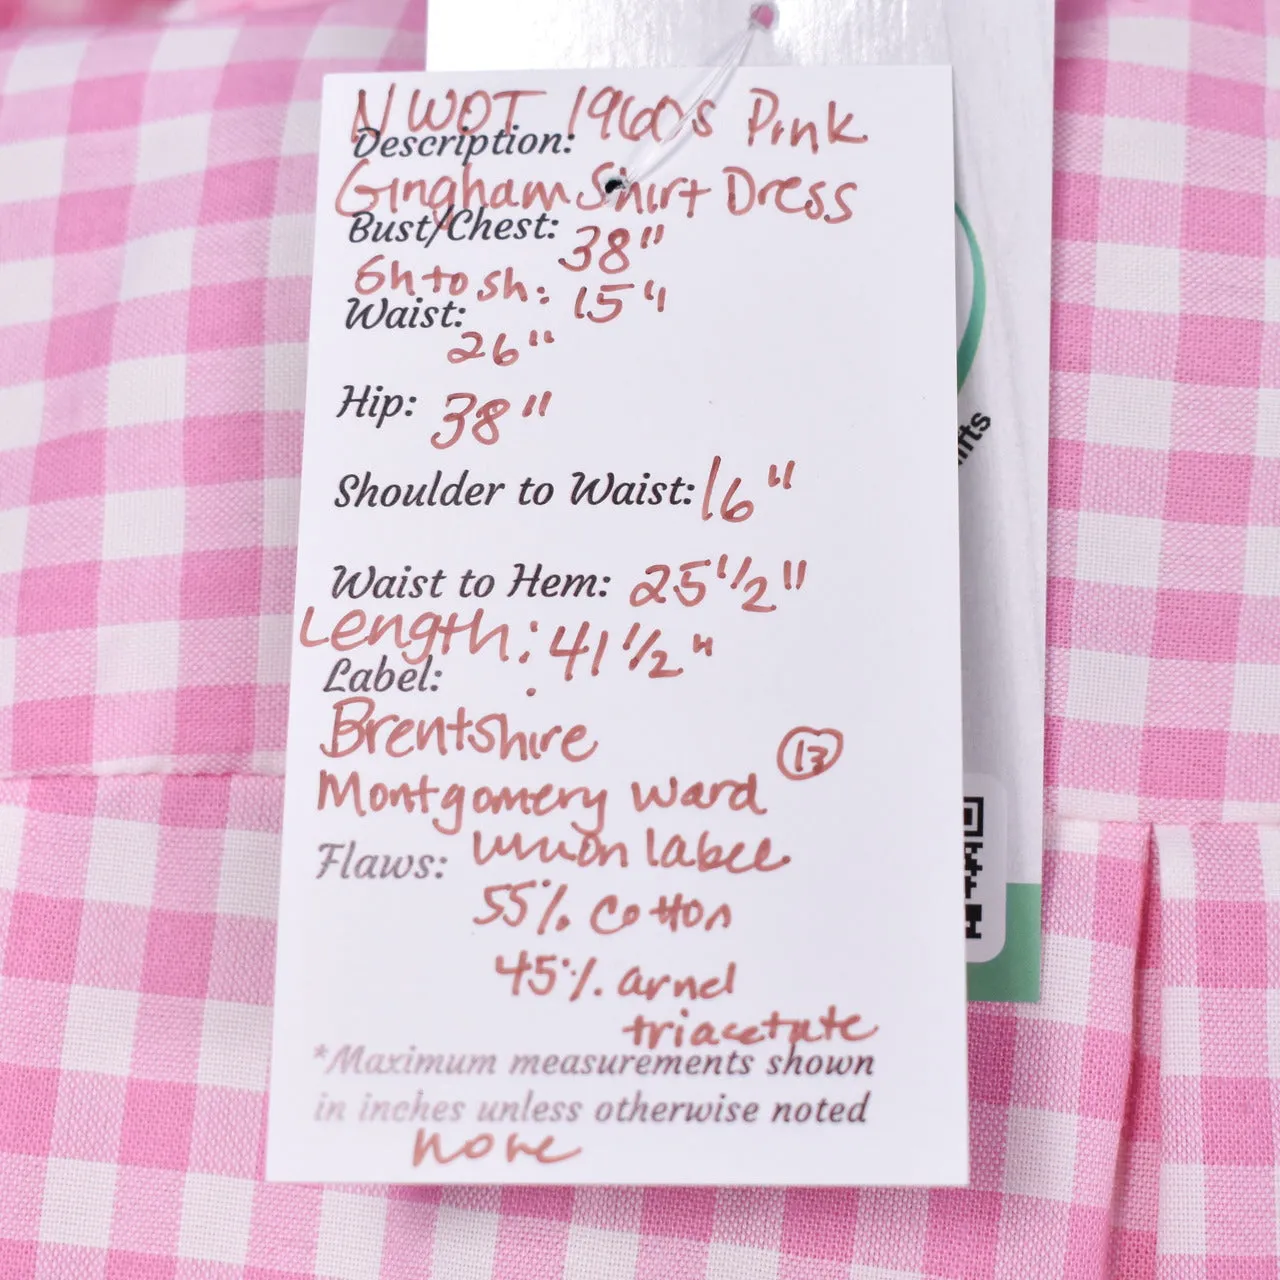 NWOT 1960s Pink
Description:
Gingham Shirt Dress
Bust/Chest: 38"
Sh to sh: 15"
Waist:
26"
Hip: 38"
Shoulder to Waist: 16"
Waist to Hem: 25 1/2"
Length: 41 1/2"
Label:
Brentshire
13
Montgomery Ward
union label
Flaws:
55% cotton
45% arnel
triacetate
*Maximum measurements shown
in inches unless otherwise noted
none